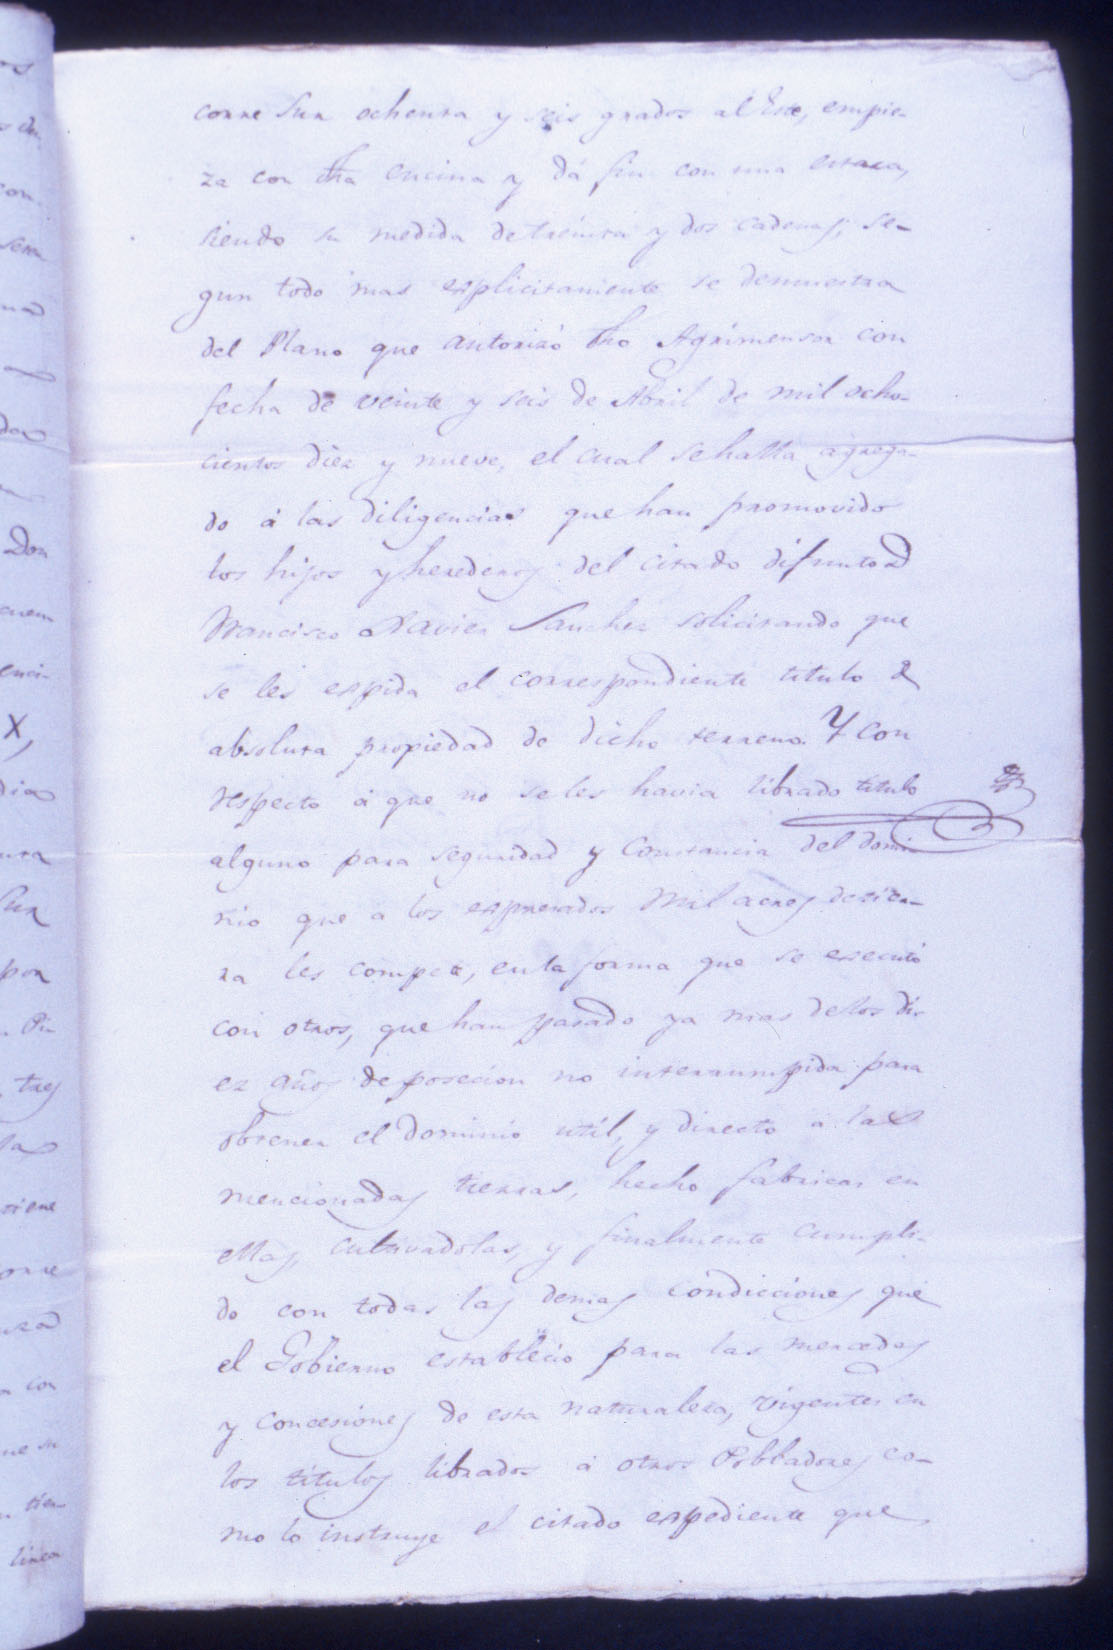 corre Sur ochenta y seis grados al Este, empie-
za con dha encina y dá fin con una estaca,
siendo su medida de treinta y dos cadenas; se-
gun todo mas esplicitamente se demuestra
del Plano que autorizó dho Agrimensor con
fecha de veinte y seis de Abril de mil ocho-
cientos diez y nueve, el cual se halla agrega-
do á las diligencias que han promovido
los hijos y herederos del citado difunto D
Francisco Xavier Sanchez solicitando que
se les espida el correspondiente titulo de
absoluta propiedad de dicho terreno. Y con
respecto á que no se les havia librado titulo
alguno para seguridad y constancia del domi
nio que a los expresados mil acres de tier-
ra les compete, en la forma que se executó
con otros, que han pasado ya mas de los di-
ez años de posecion no interrumpida para
obtener el dominio util, y directo a las
mencionadas tierras, hecho fabricas en
ellas, cultivadolas, y finalmente cumpli-
do con todas las demas condicciones que
el Gobierno establecio para las mercedes
y concesiones de esta naturaleza, vigentes en
los titulos librados á otros Pobladores co-
mo lo instruye el citado espediente que